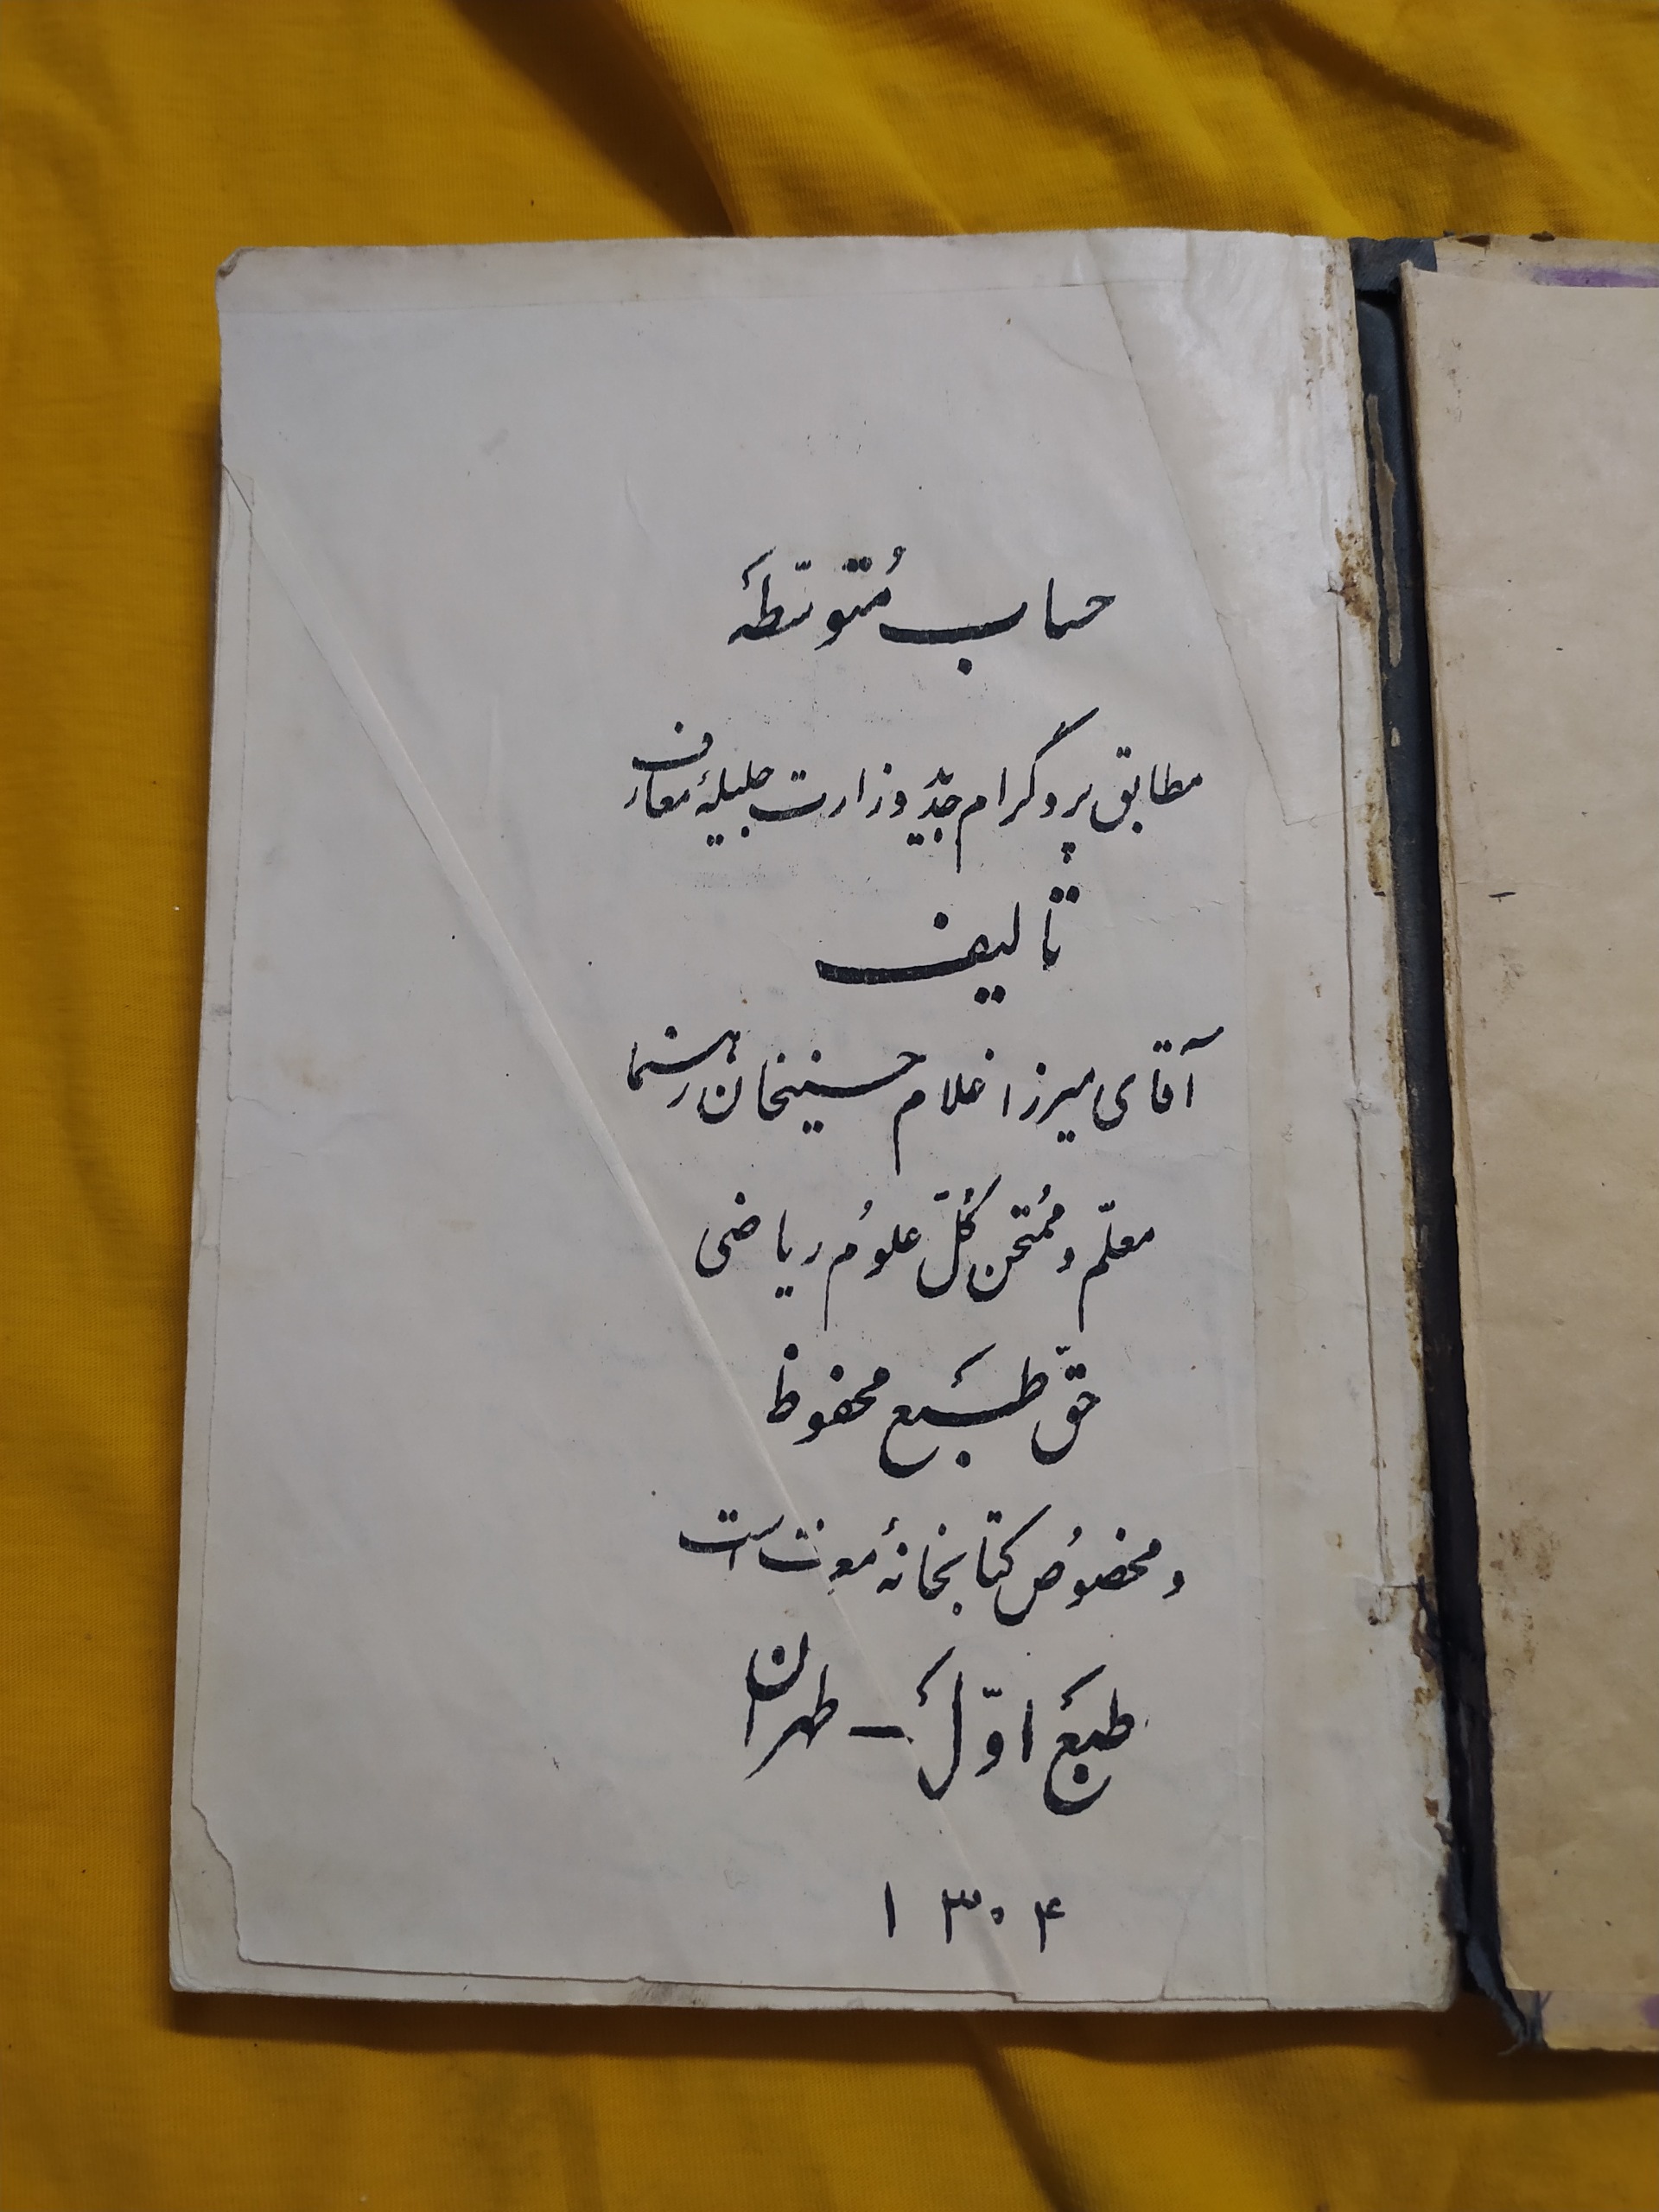 حساب مُتوسّطۀ
مطابق پروگرام جدید وزارت جلیلۀ معارف
تألیف
آقای میرزا غلام حسینخان رهنما
معلّم و مُمتحن کُلّ علوُم ریاضی
حقّ طبَع محفوظ
و مخصوُص کتابخانۀ معرفت است
طبَع اوّل – طهران
۱۳۰۴